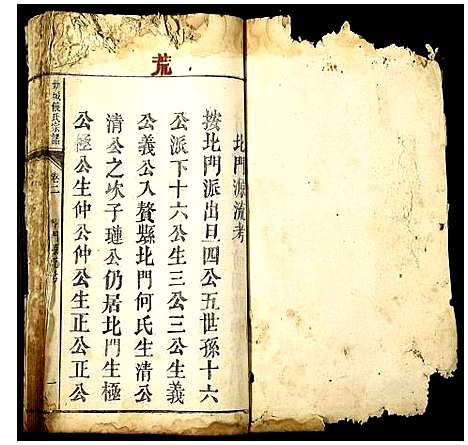 荒
北門源流考
按北門派出旦四公五世孫十六
公派下十六公生三公三公生義
公義公入贅縣北門何氏生清公
清公之次子璉公仍居北門生極
公極公生仲公仲公生正公正公
氏宗譜
卷二
一